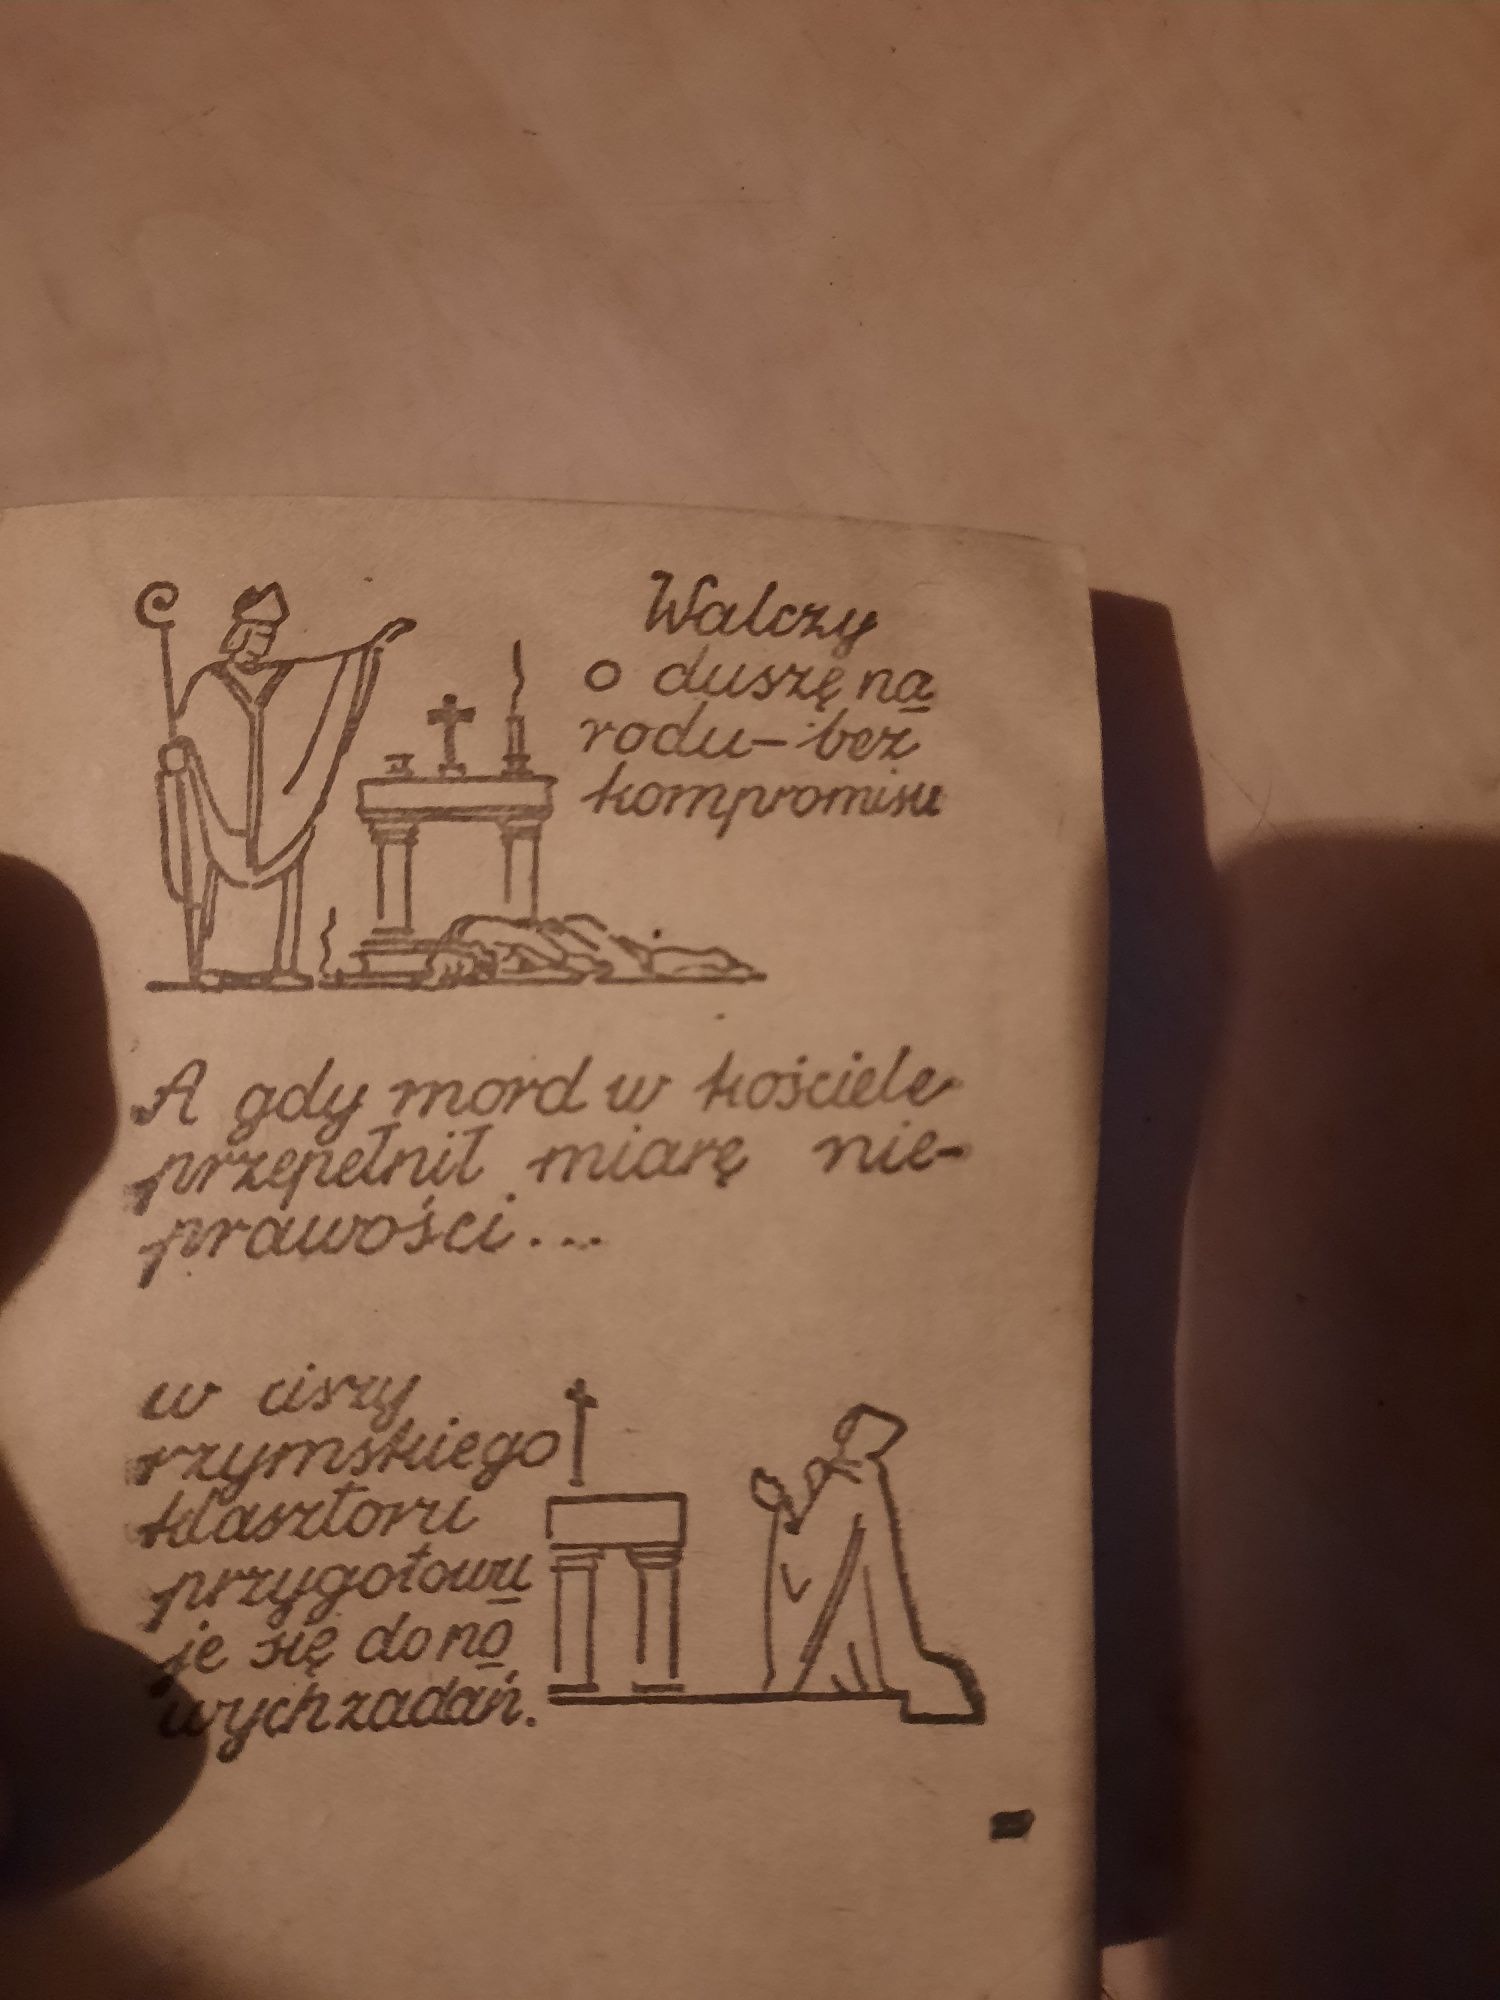 Walczy
o duszę na
rodu – bez
kompromisu
A gdy mord w kościele
przepełnił miarę nie-
prawości...
w ciszy
rzymskiego
klasztoru
przygotowu
je się do no
wych zadań.